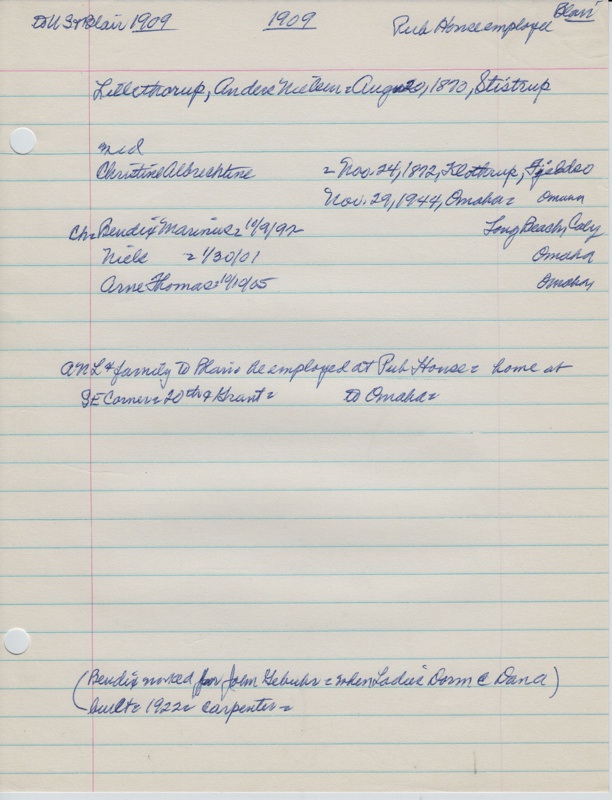 Blair
To U S & Blair 1909 1909 Pub House employed
Lillethorup, Anders Nielsen = Aug 20, 1870, Stistrup
med
Christine Albrechtine = Nov. 24, 1872, Klotrup,
Nov. 29, 1944, Omaha = Omaha
Ch = Bendix Marinus = 10/9/92 Long Beach, Caly
Niels = 1/30/01 Omaha
Arne Thomas = 10/10/05 Omaha
A N L & family to Blair = he employed at Pub House = home at
SE Corner = 20th & Grant = to Omaha =
(Bendix worked for John Gebuhr = when Ladies Dorm @ Dana)
built = 1922 = carpenter =